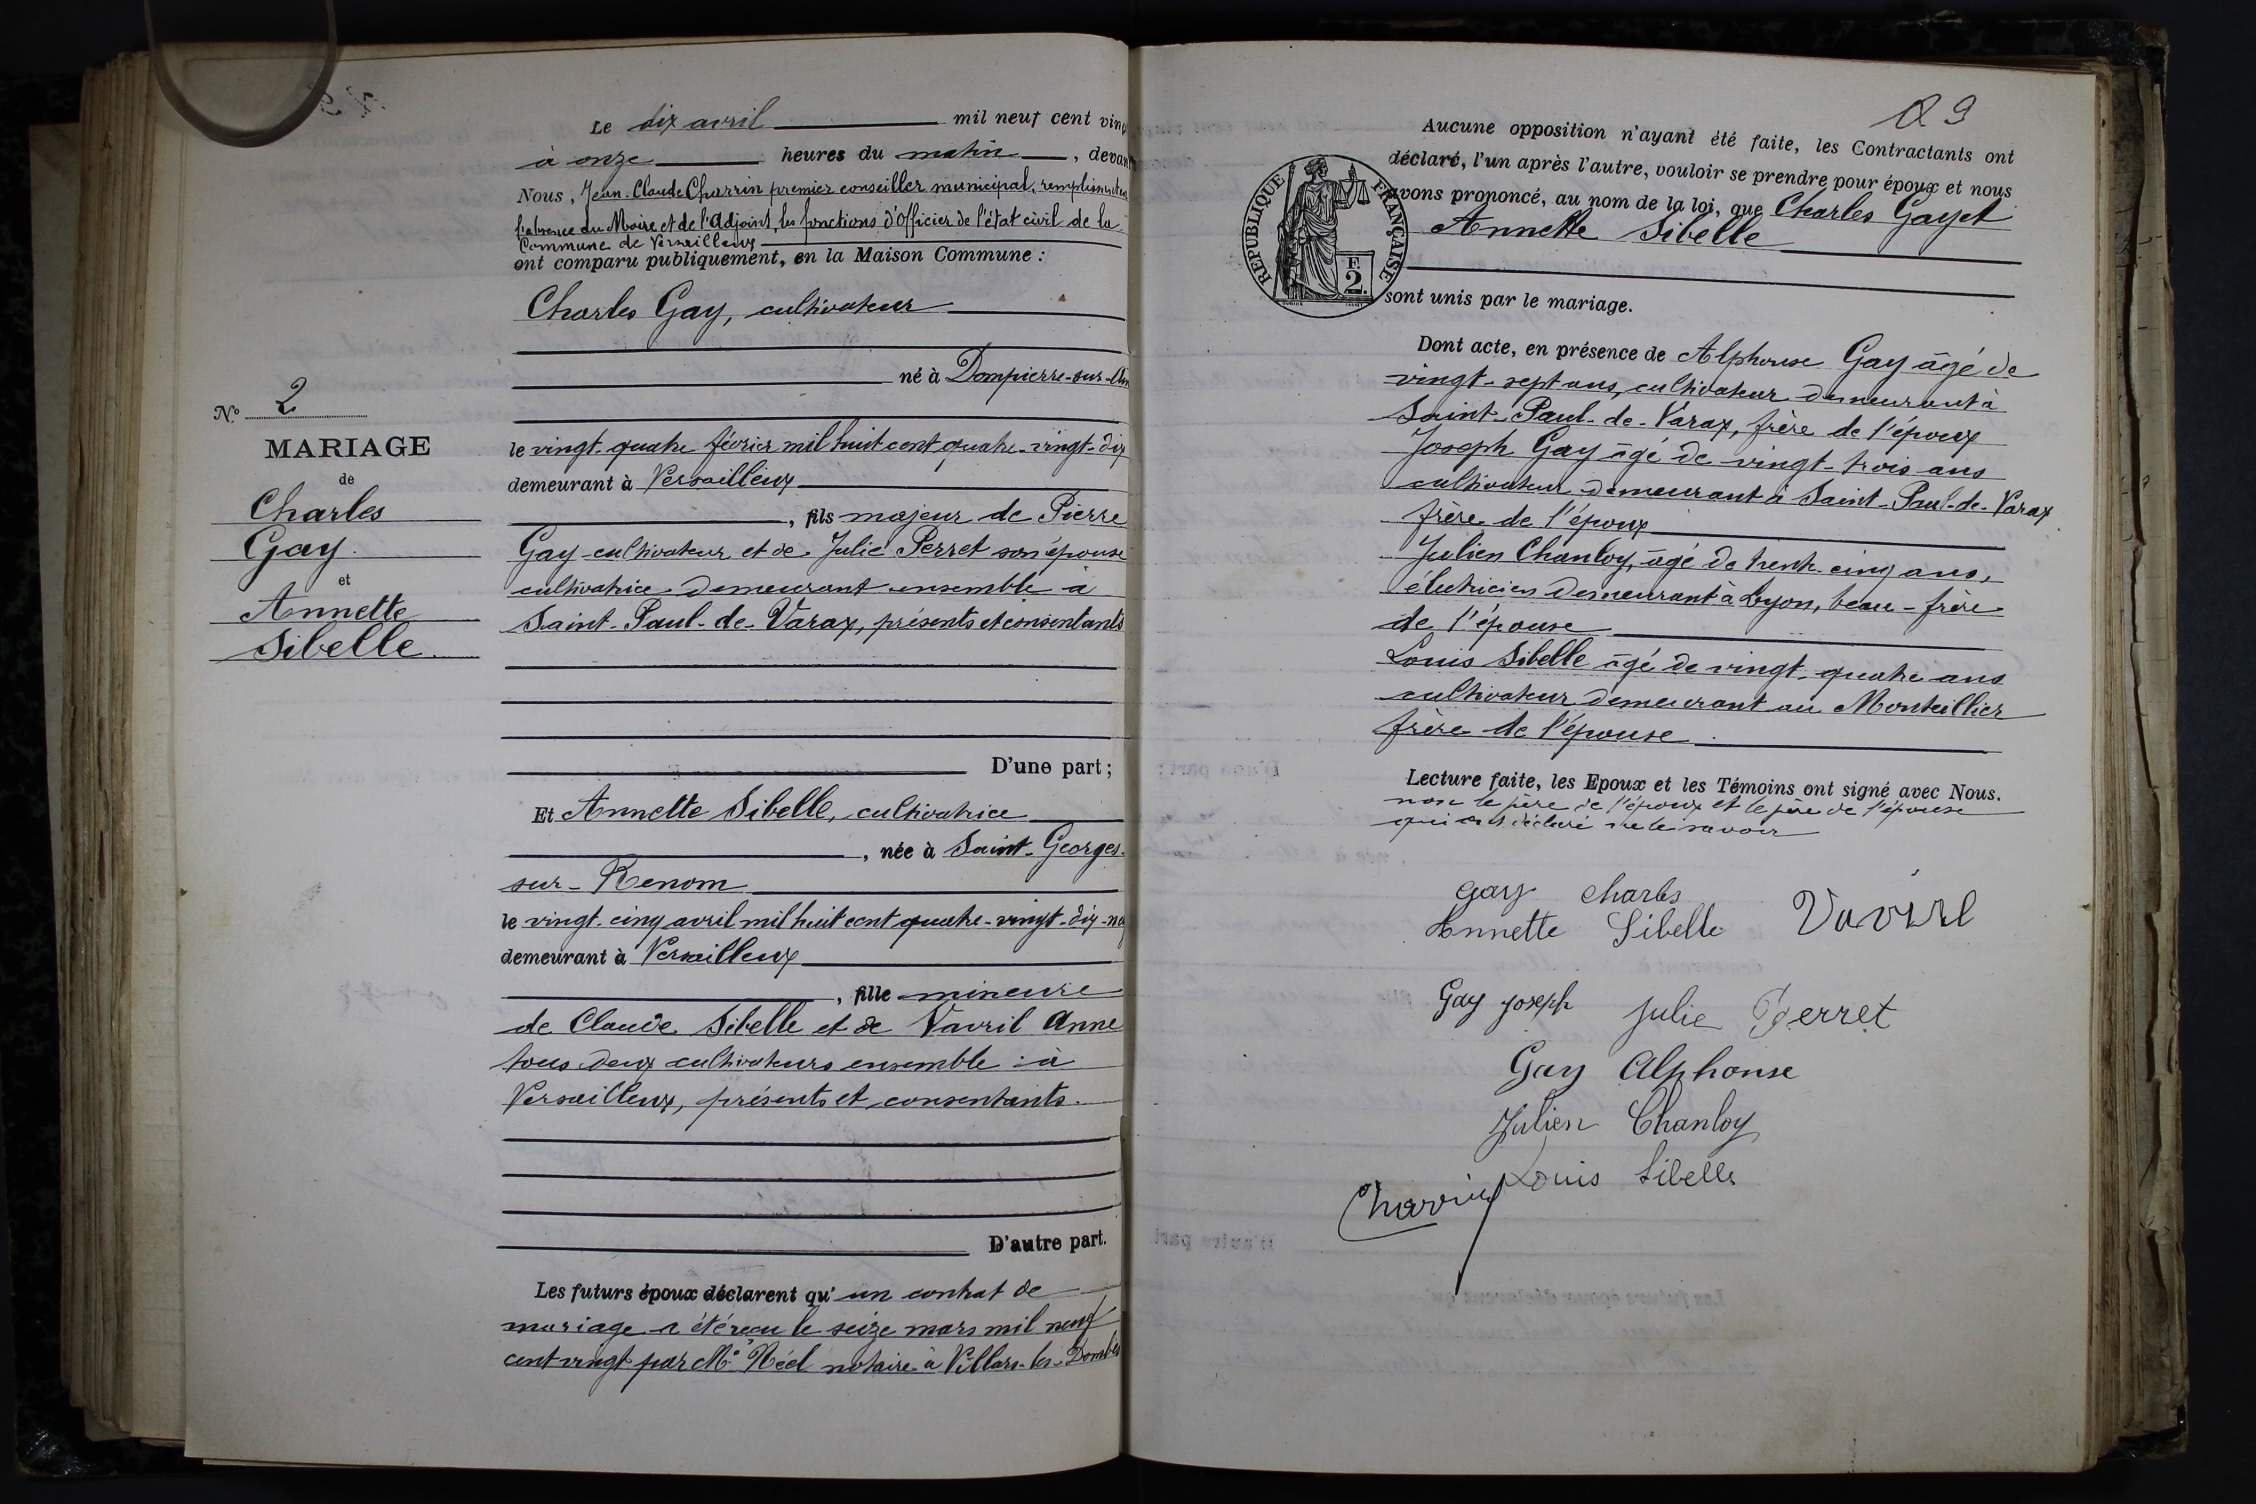 Le dix avril mil neuf cent ving
à onze heures du matin, devan
Nous, Jean-Claude Charrin premier conseiller municipal, remplissant en
l'absence du Maire et de l'Adjoint, les fonctions d'Officier de l'état civil de la
Commune de Versailleux
ont comparu publiquement, en la Maison Commune :
Charles Gay, cultivateur
né à Dompierre-sur-Ain
N° 2
MARIAGE
de
Charles
Gay.
et
Annette
Sibelle.
le vingt-quatre février mil huit cent quatre-vingt-dix
demeurant à Versailleux
, fils majeur de Pierre
Gay cultivateur et de Julie Perret son épouse
cultivatrice demeurant ensemble à
Saint-Paul-de-Varax, présents et consentants
D'une part ;
Et Annette Sibelle, cultivatrice
, née à Saint-Georges-
sur-Renom
le vingt-cinq avril mil huit cent quatre-vingt-dix-neuf
demeurant à Versailleux
, fille mineure
de Claude Sibelle et de Vavril Anne
tous deux cultivateurs ensemble à
Versailleux, présents et consentants.
D'autre part.
Les futurs époux déclarent qu'un contrat de
mariage a été reçu le seize mars mil neuf
cent vingt par Me Néel notaire à Villars-les-Dombes
Q 9
Aucune opposition n'ayant été faite, les Contractants ont
déclaré, l'un après l'autre, vouloir se prendre pour époux et nous
avons prononcé, au nom de la loi, que Charles Gay et
Annette Sibelle
RÉPUBLIQUE FRANÇAISE
F.
2.
sont unis par le mariage.
Dont acte, en présence de Alphonse Gay âgé de
vingt-sept ans, cultivateur demeurant à
Saint-Paul-de-Varax, frère de l'époux
Joseph Gay âgé de vingt-trois ans
cultivateur demeurant à Saint-Paul-de-Varax
frère de l'époux
Julien Chanloy, âgé de trente-cinq ans,
électricien demeurant à Lyon, beau-frère
de l'épouse
Louis Sibelle âgé de vingt-quatre ans
cultivateur demeurant au Montellier
frère de l'épouse.
Lecture faite, les Epoux et les Témoins ont signé avec Nous.
non le père de l'époux et le père de l'épouse
qui ont déclaré ne le savoir
Gay Charles
Annette Sibelle Vavril
Gay Joseph Julie Perret
Gay Alphonse
Julien Chanloy
Louis Sibelle
Charrin